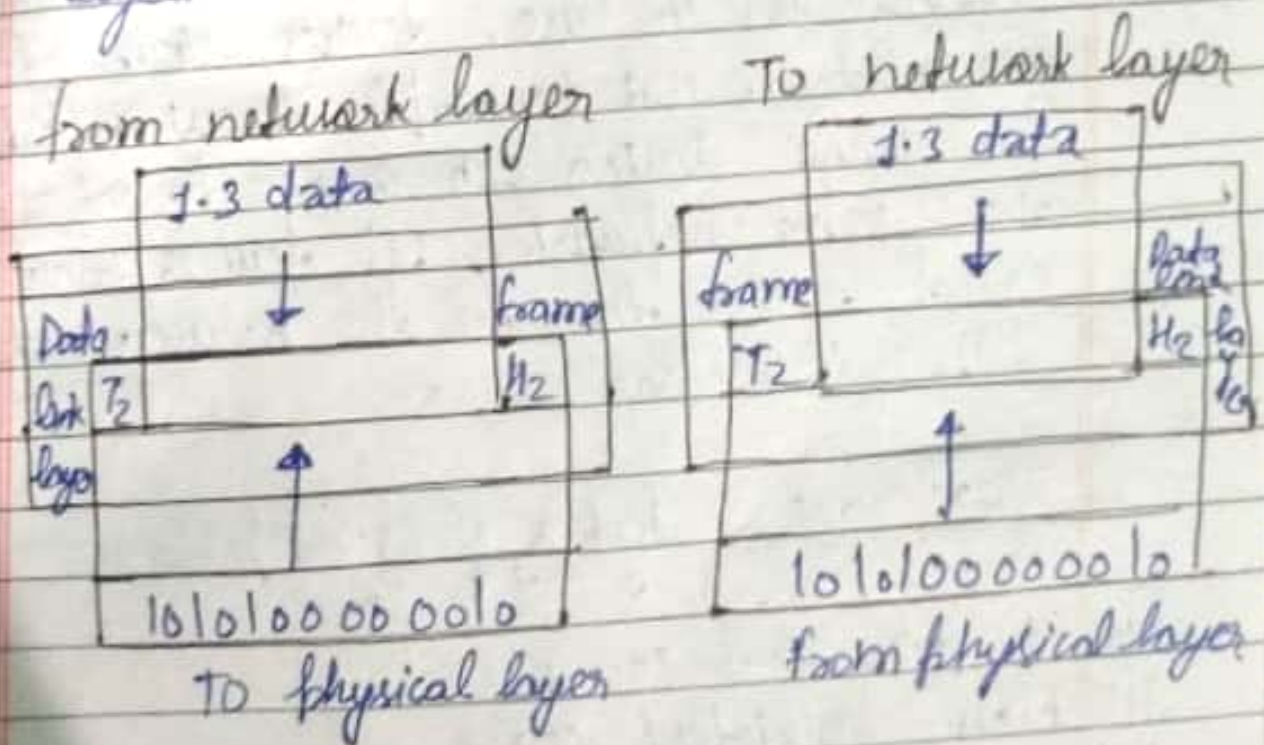 from network layer
1.3 data
Data
link
layer
T2
frame
H2
10101000000010
To physical layer
To network layer
1.3 data
frame
T2
Data
link
layer
H2
10101000000010
from physical layer